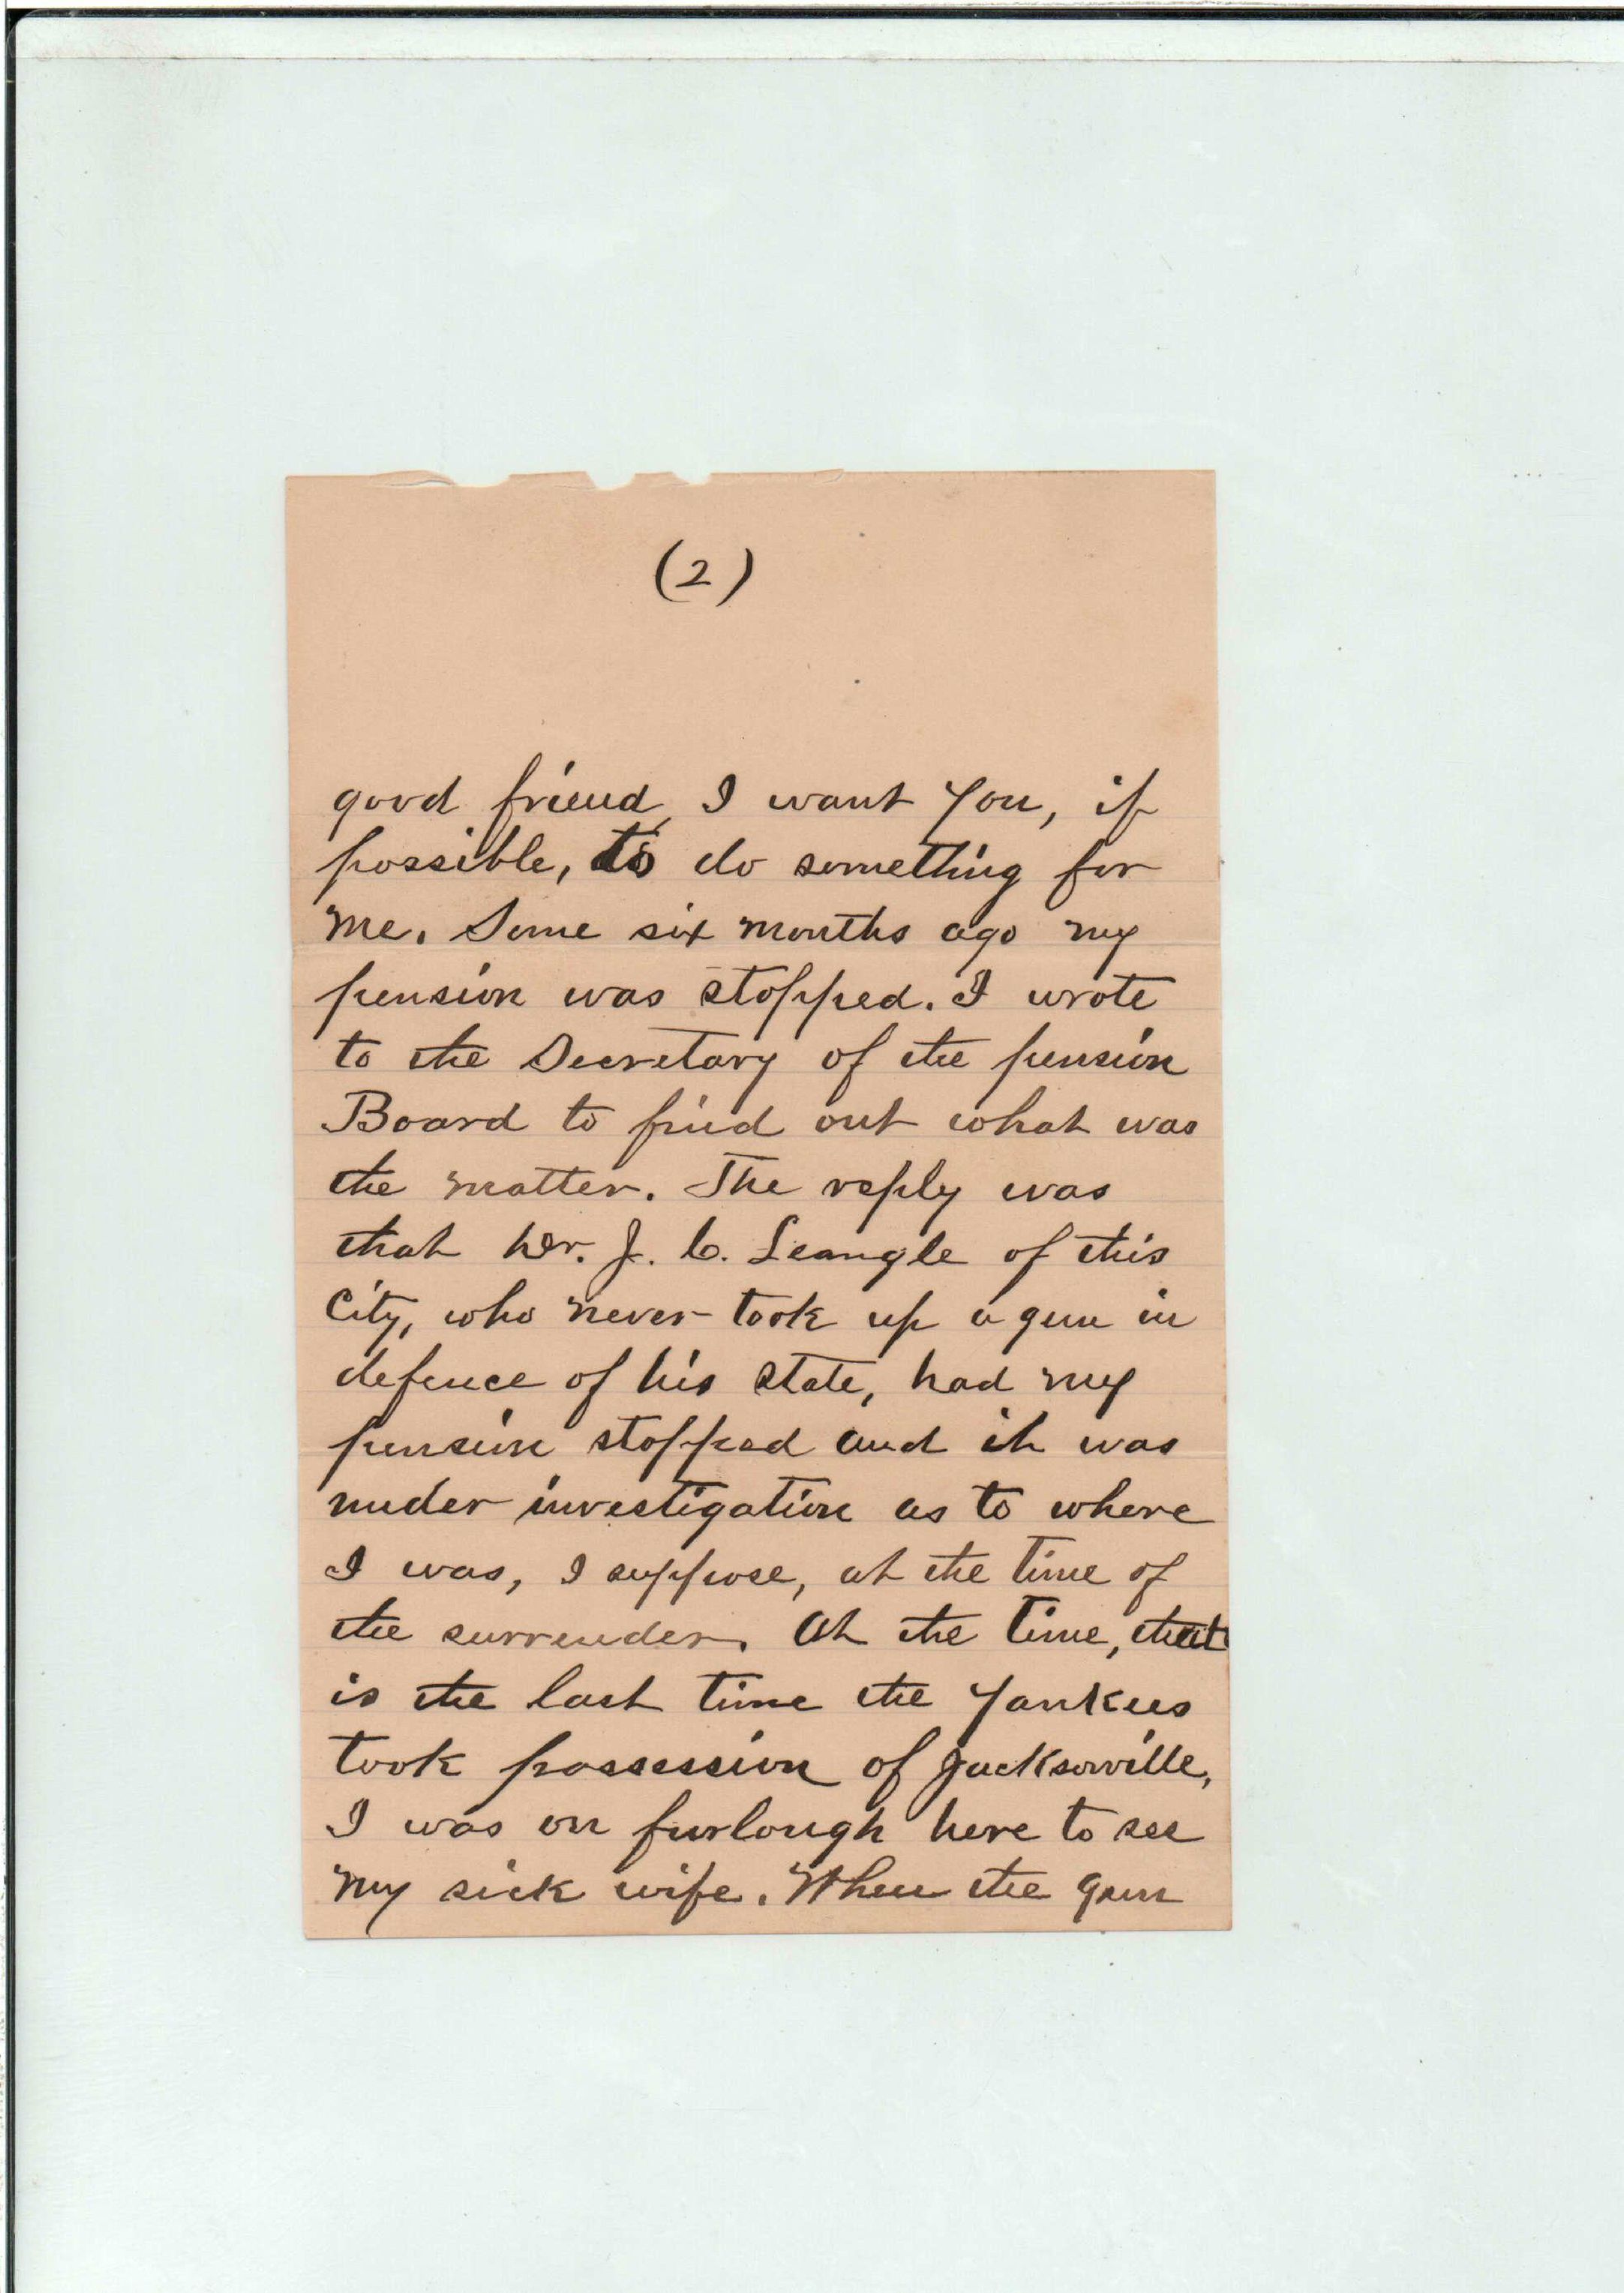 (2)
good friend, I want you, if
possible, to do something for
me. Some six months ago my
pension was stopped. I wrote
to the Secretary of the pension
Board to find out what was
the matter. The reply was
that Mr. J. C. of this
City, who never took up a gun in
defence of his state, had my
pension stopped and it was
under investigation as to where
I was, I suppose, at the time of
the surrender. At the time, that
is the last time the Yankees
took possession of Jacksonville,
I was on furlough here to see
my sick wife. When the gun